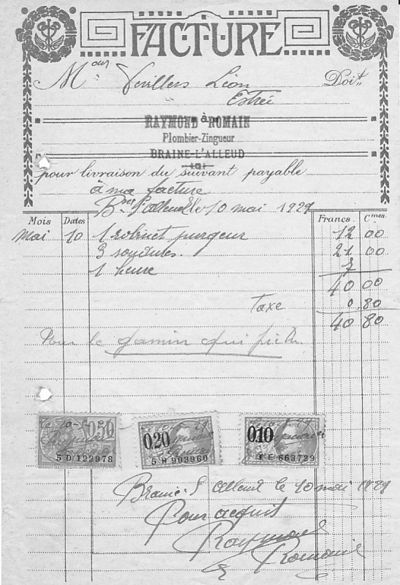 FACTURE
Mour Veuillers Léon Doit
Estrée
à
RAYMOND ROMAIN
Plombier-Zingueur
BRAINE-L'ALLEUD
pour livraison du suivant payable
à ma facture
Bne l'alleud le 10 mai 1929
Mois Dates Francs Cmes
Mai 10 1 robinet purgeur 12 00
3 soudures 21 00
1 heure 7
40 00
Taxe 0.80
40 80
Pour le gamin qui
050 020 010
5 D 122978 5 H 903960 1 E 663729
Braine-l'alleud le 10 mai 1929
Pour acquit
Raymond
Romain